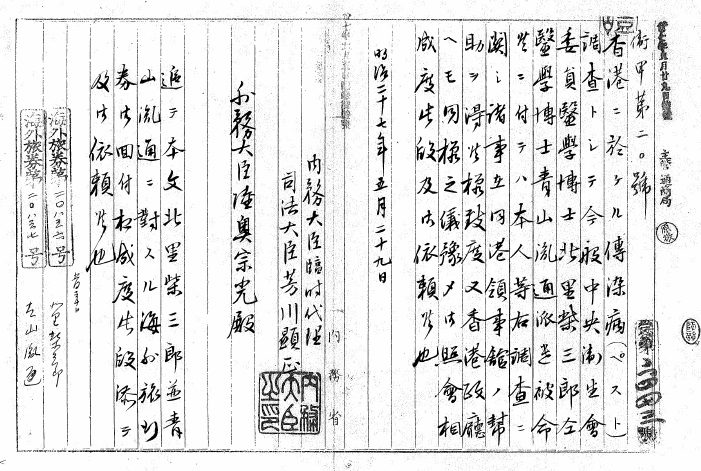 衛甲第二〇號
香港ニ於ケル傳染病(ペスト)
調査トシテ今般中央衛生會
委員醫學博士北里柴三郎仝
醫學博士青山胤通派遣被命
候ニ付テハ本人等右調査ニ
関シ諸事在同港領事舘ノ幇
助ヲ得候様致度又香港政廳
ヘモ同様之儀豫〆御照會相
成度此段及御依頼候也
明治二十七年五月二十九日
内務大臣臨時代理
司法大臣芳川顯正
内務大臣之印
外務大臣陸奥宗光殿
追テ本文北里柴三郎並青
山胤通ニ對スル海外旅行
券御回付相成度此段添テ
及御依頼候也
海外旅券第二〇八三六号
海外旅券第二〇八三七号
青山胤通
内務省
通商局
受第二四四三號